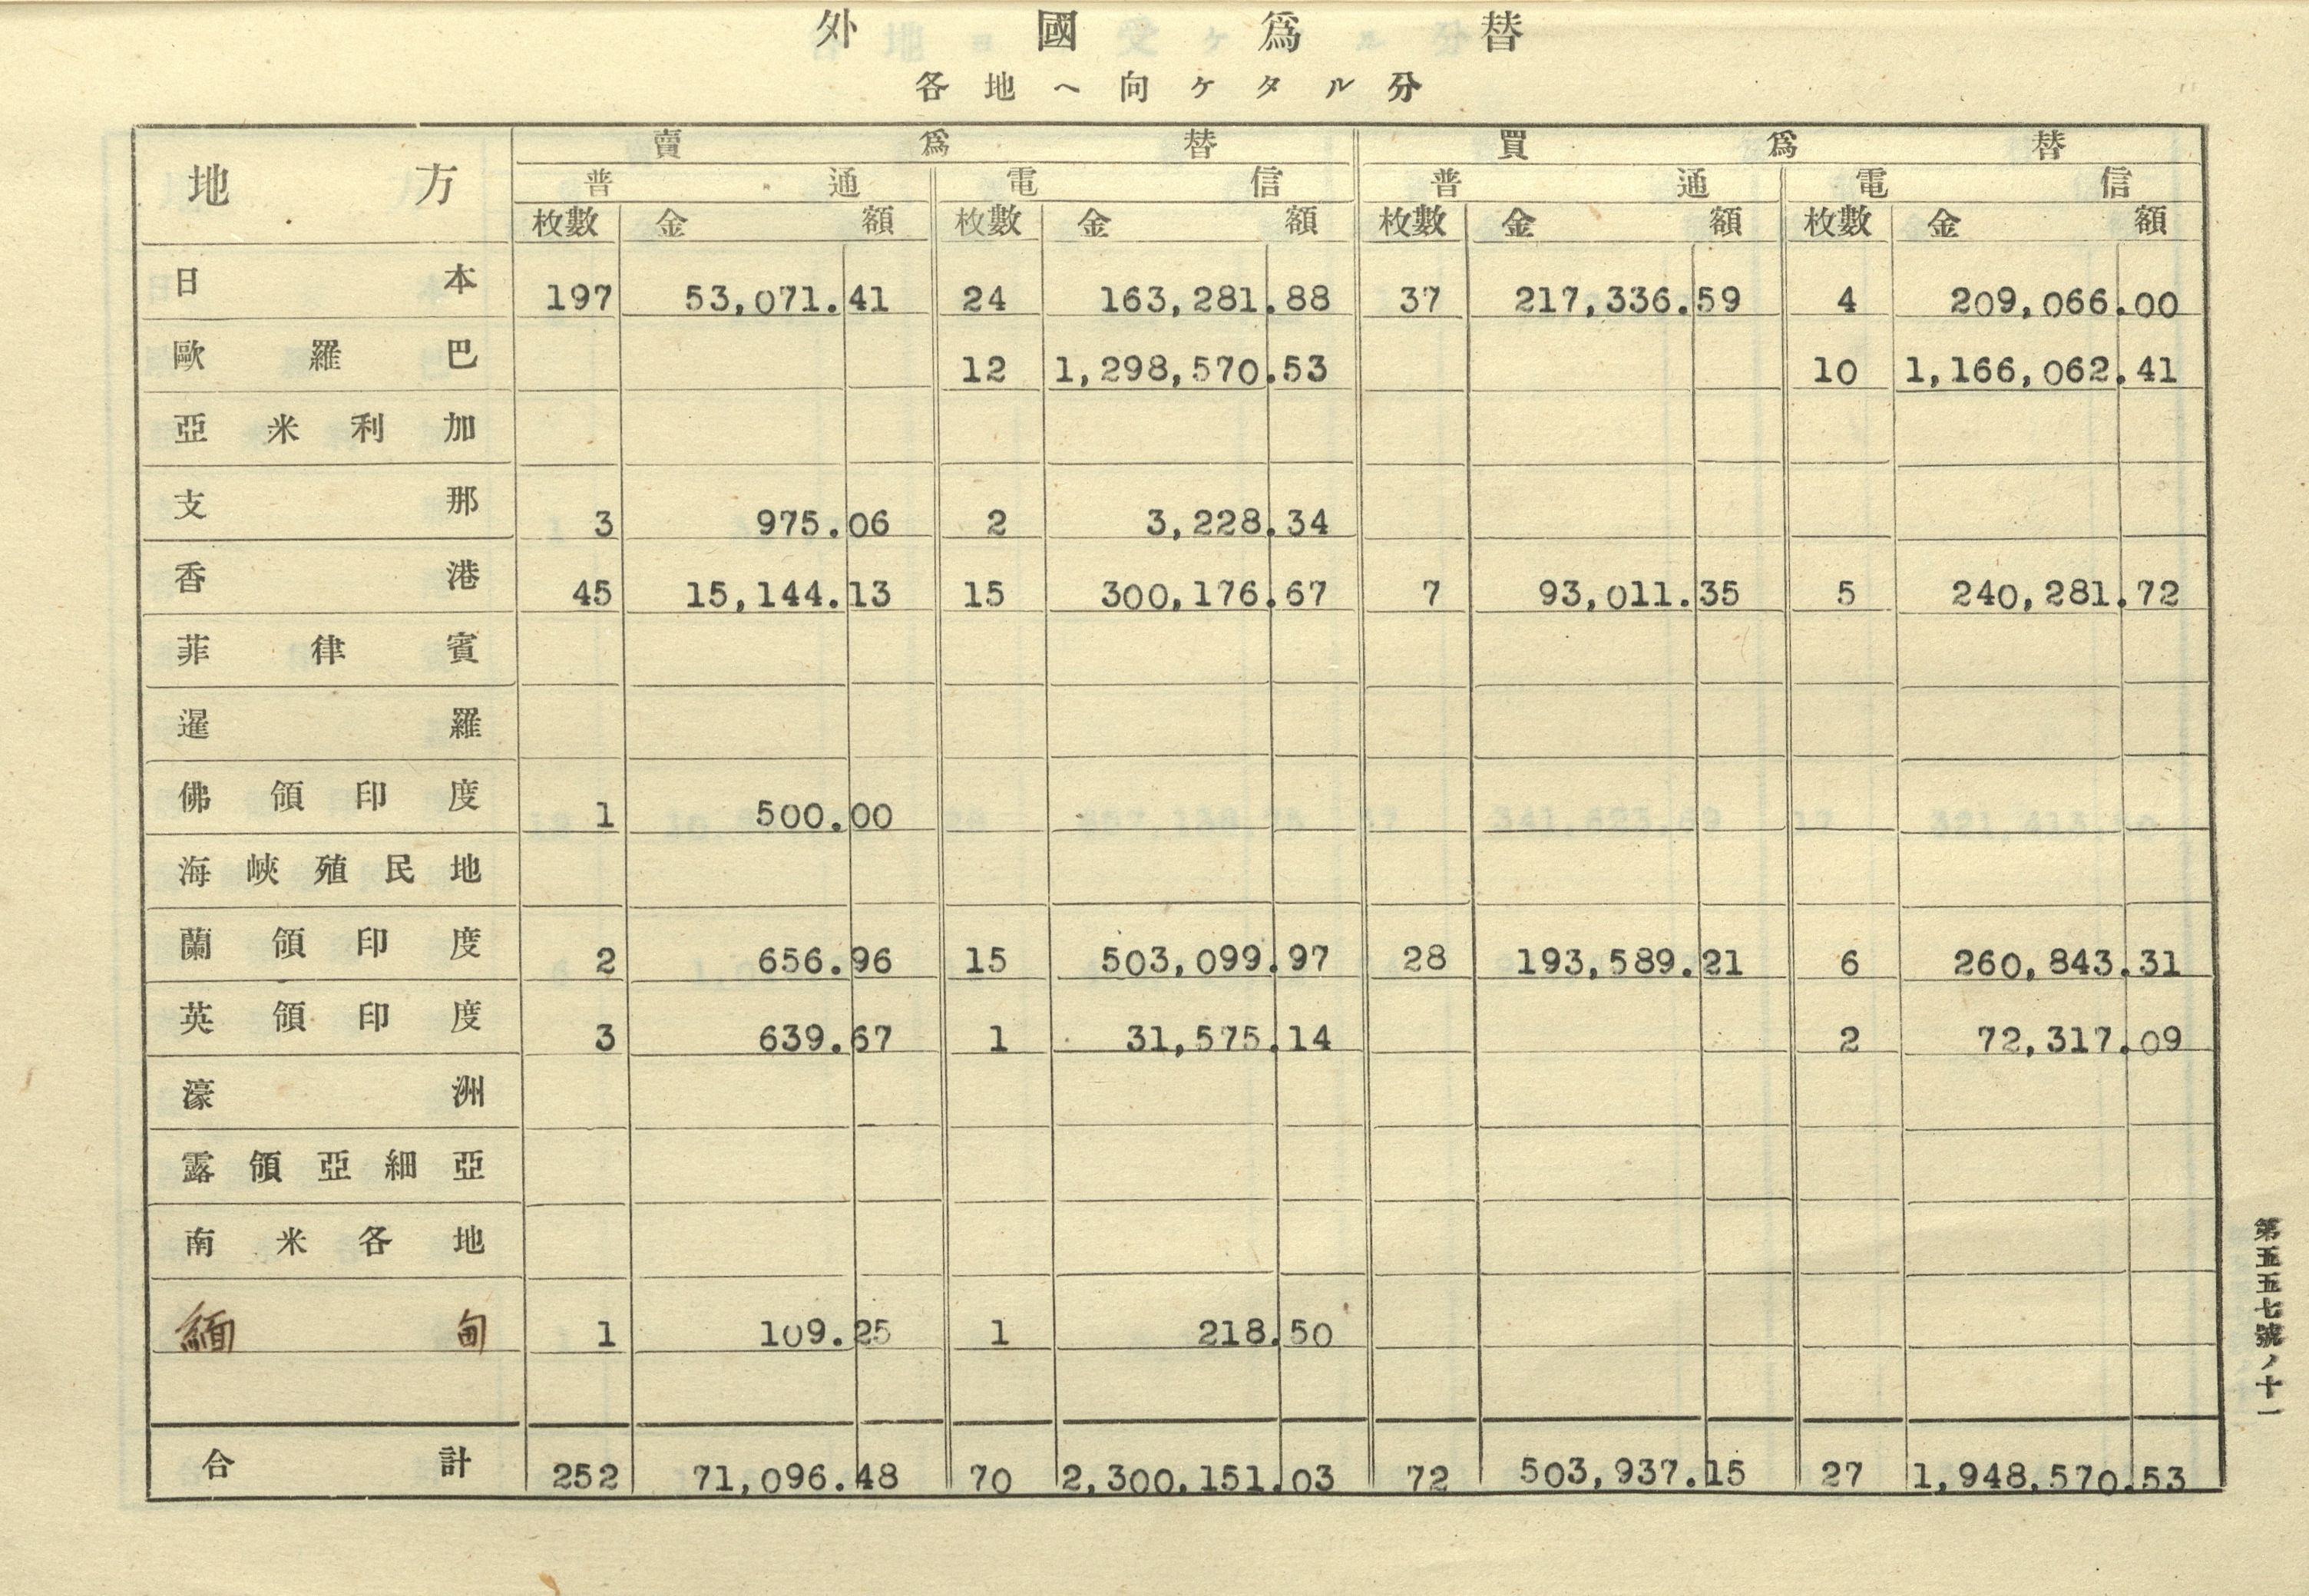 外國爲替
各地ヘ向ケタル分
地方 賣爲替 買爲替
普通 電信 普通 電信
枚數 金額 枚數 金額 枚數 金額 枚數 金額
日本 197 53,071.41 24 163,281.88 37 217,336.59 4 209,066.00
歐羅巴 12 1,298,570.53 10 1,166,062.41
亞米利加
支那 3 975.06 2 3,228.34
香港 45 15,144.13 15 300,176.67 7 93,011.35 5 240,281.72
菲律賓
暹羅
佛領印度 1 500.00
海峽殖民地
蘭領印度 2 656.96 15 503,099.97 28 193,589.21 6 260,843.31
英領印度 3 639.67 1 31,575.14 2 72,317.09
濠洲
露領亞細亞
南米各地
緬甸 1 109.25 1 218.50
合計 252 71,096.48 70 2,300,151.03 72 503,937.15 27 1,948,570.53
第五五七號ノ十一